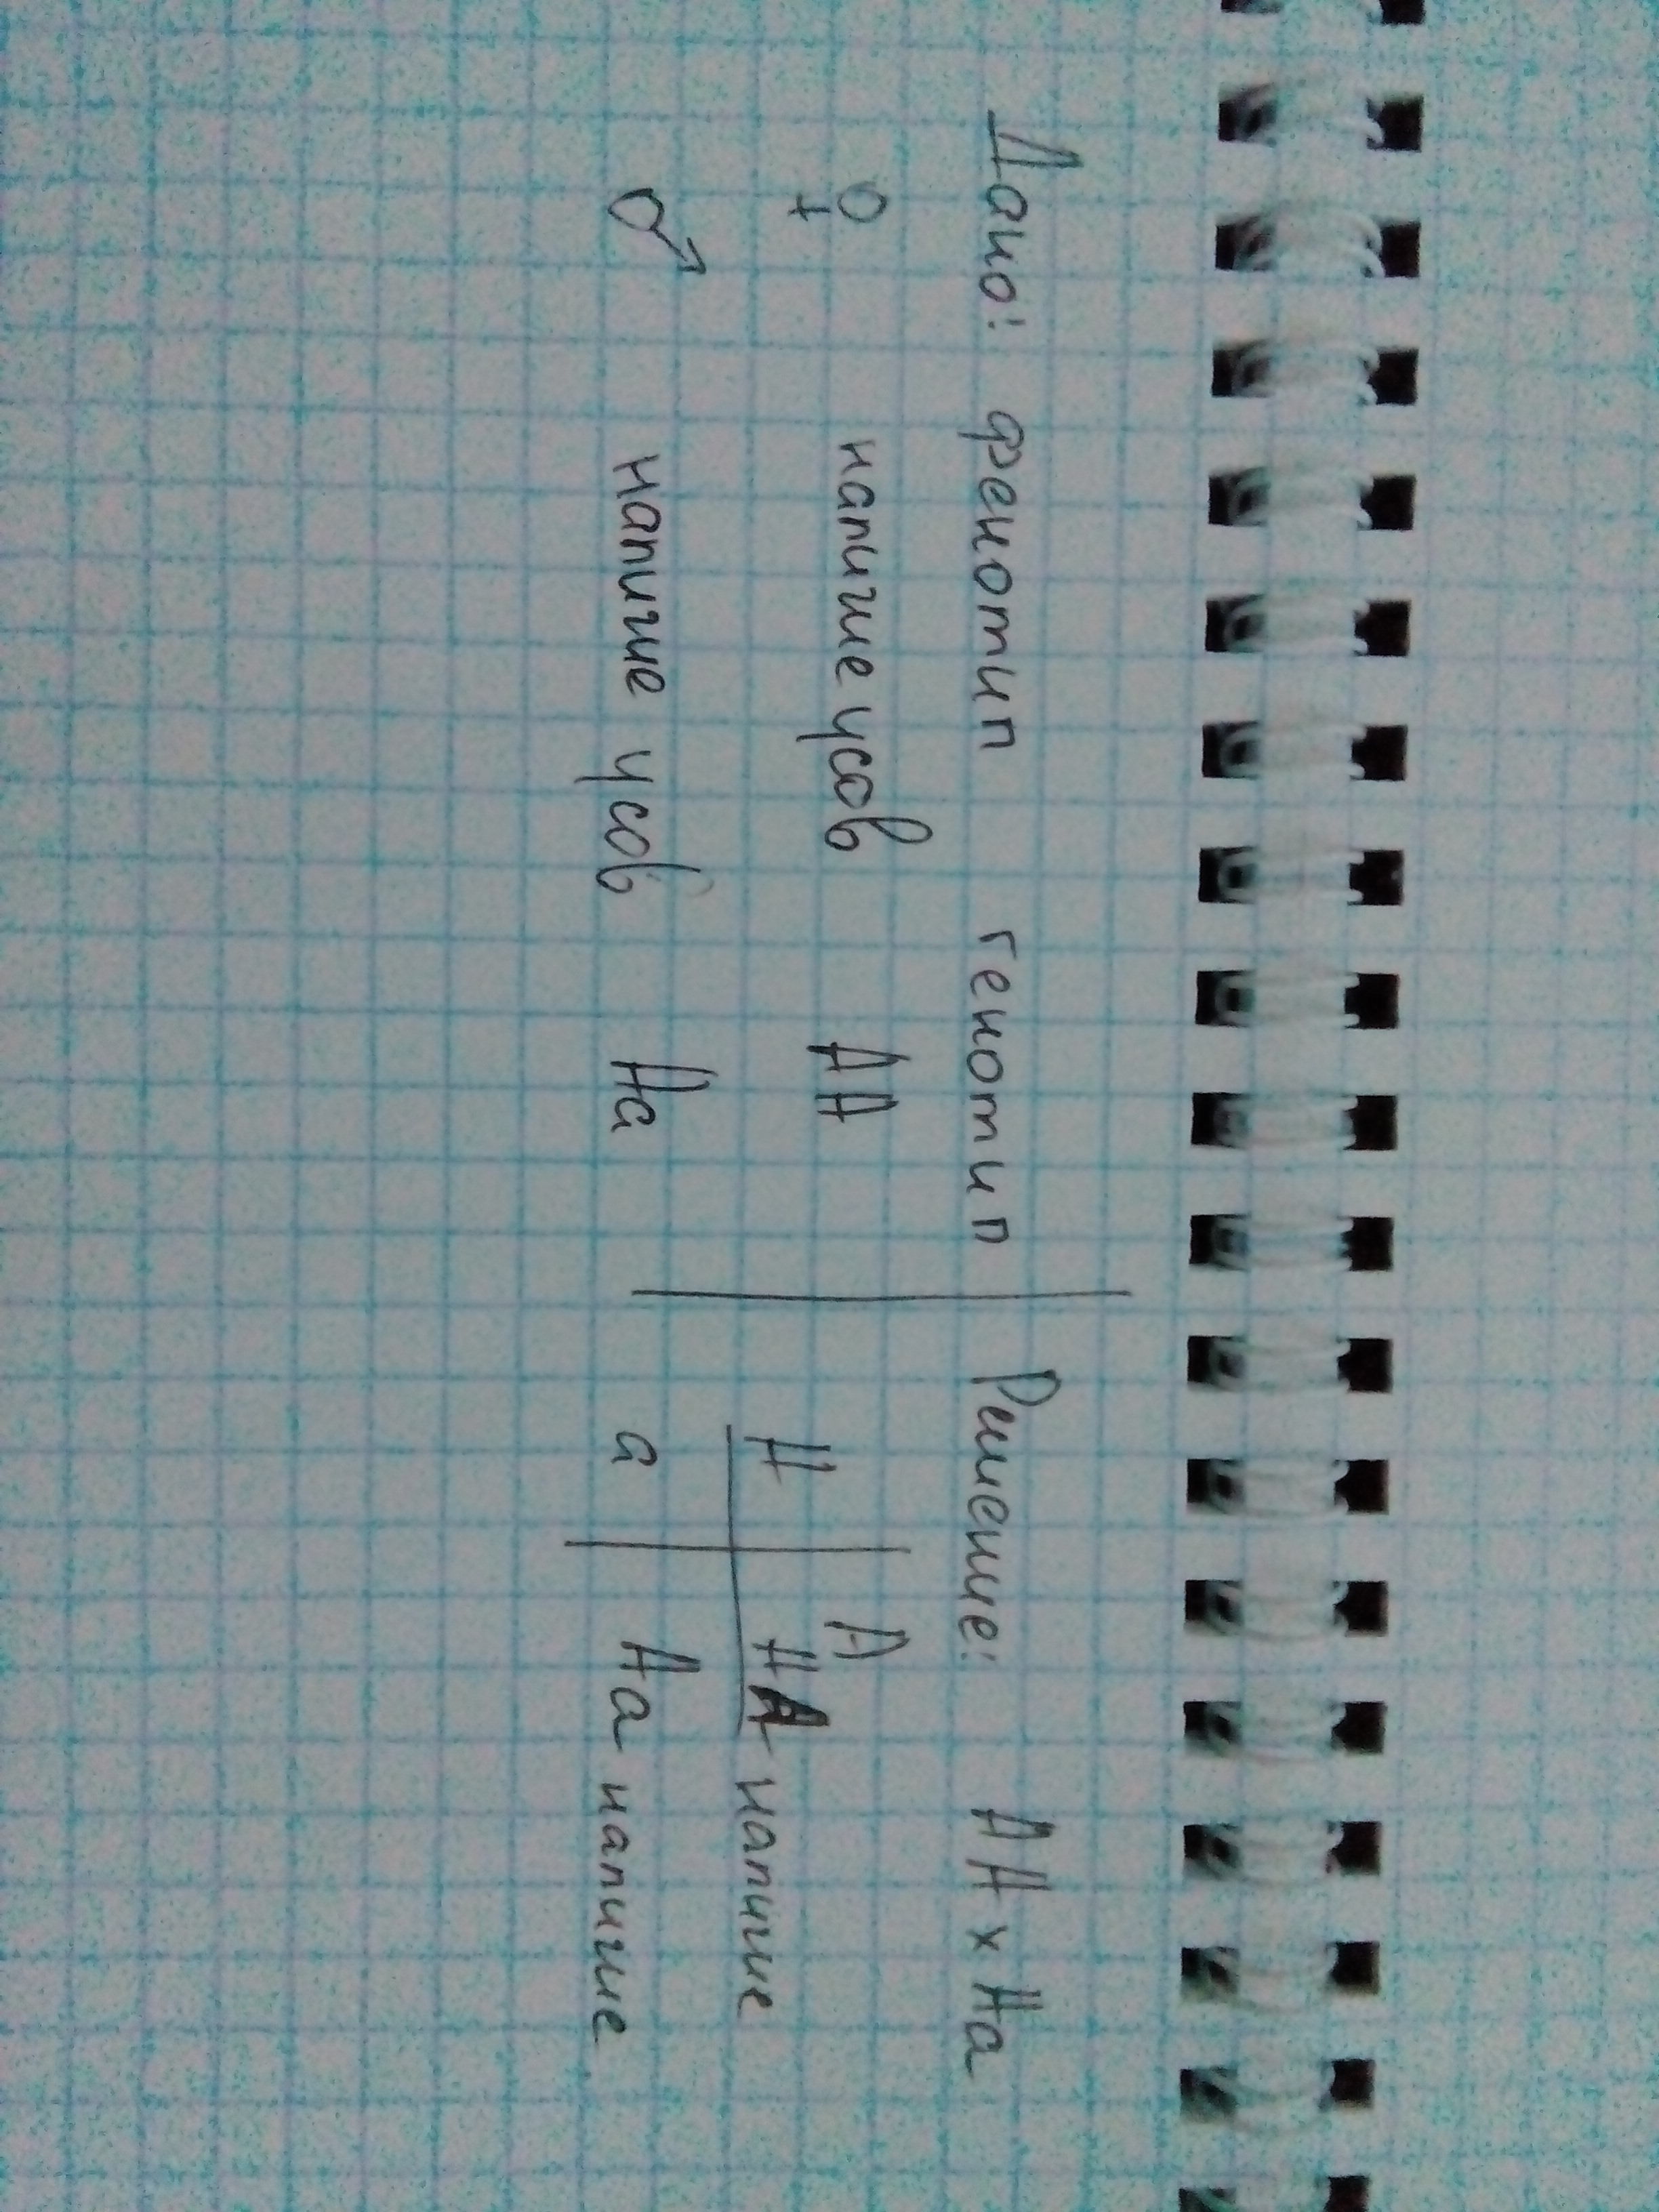 Дано: фенотип генотип Решение: АА х Аа
♀ наличие усов АА А
А АА наличие
♂ наличие усов Аа а Аа наличие